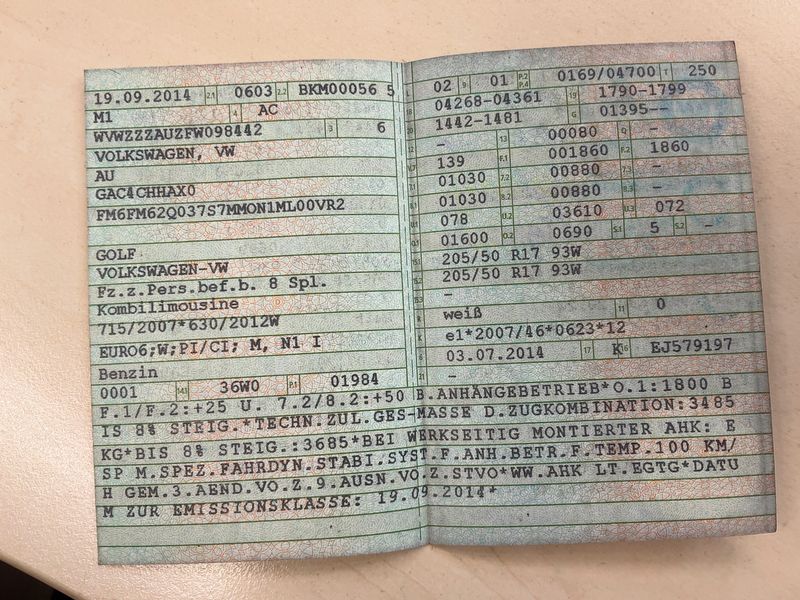 19.09.2014 2.1 0603 2.2 BKM00056 5
M1 4 AC
WVWZZZAUZFW098442 3 6
VOLKSWAGEN, VW
AU
GAC4CHHAX0
FM6FM62Q037S7MMON1ML00VR2
GOLF
VOLKSWAGEN-VW
Fz.z.Pers.bef.b. 8 Spl.
Kombilimousine
715/2007*630/2012W
EURO6;W;PI/CI; M, N1 I
Benzin
0001 14.1 36W0 P.1 01984
L 02 9 01 P.2 P.4 0169/04700 T 250
18 04268-04361 19 1790-1799
20 1442-1481 G 01395--
12 - 13 00080 Q -
V.7 139 F.1 001860 F.2 1860
7.1 01030 7.2 00880 7.3 -
8.1 01030 8.2 00880 8.3 -
U.1 078 U.2 03610 U.3 072
O.1 01600 O.2 0690 S.1 5 S.2 -
15.1 205/50 R17 93W
15.2 205/50 R17 93W
15.3 -
R weiß 11 0
K e1*2007/46*0623*12
6 03.07.2014 17 K 16 EJ579197
21 -
F.1/F.2:+25 U. 7.2/8.2:+50 B.ANHÄNGEBETRIEB*O.1:1800 B
IS 8% STEIG.*TECHN.ZUL.GES-MASSE D.ZUGKOMBINATION:3485
KG*BIS 8% STEIG.:3685*BEI WERKSEITIG MONTIERTER AHK: E
SP M.SPEZ.FAHRDYN.STABI.SYST.F.ANH.BETR.F.TEMP.100 KM/
H GEM.3.AEND.VO.Z.9.AUSN.VO.Z.STVO*WW.AHK LT.EGTG*DATU
M ZUR EMISSIONSKLASSE: 19.09.2014*